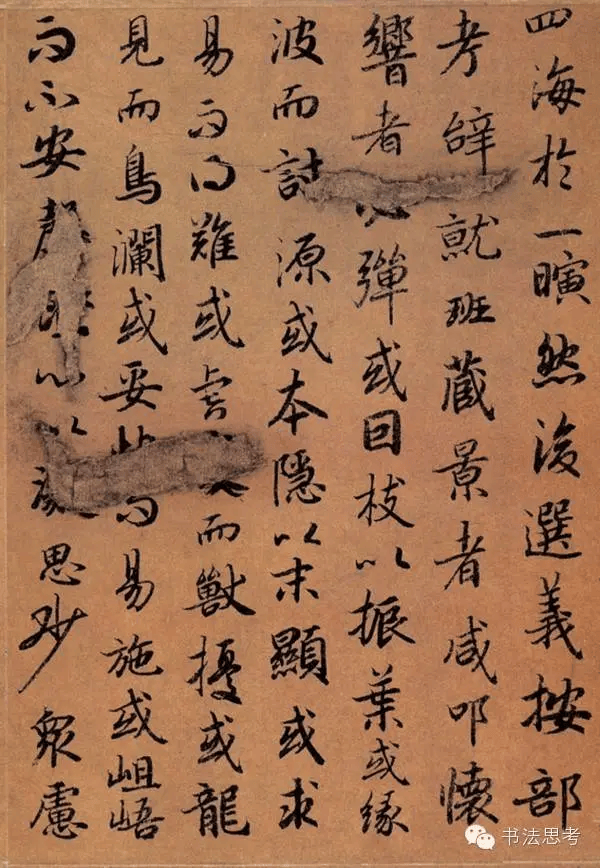 四海於一瞚然後選義按部
考辭就班藏景者咸叩懷
響者彈或因枝以振葉或緣
波而討源或本隱以末顯或求
易而得難或虎而獸擾或龍
見而鳥瀾或妥而易施或岨峿
而不安心以凝思眇衆慮
书法思考